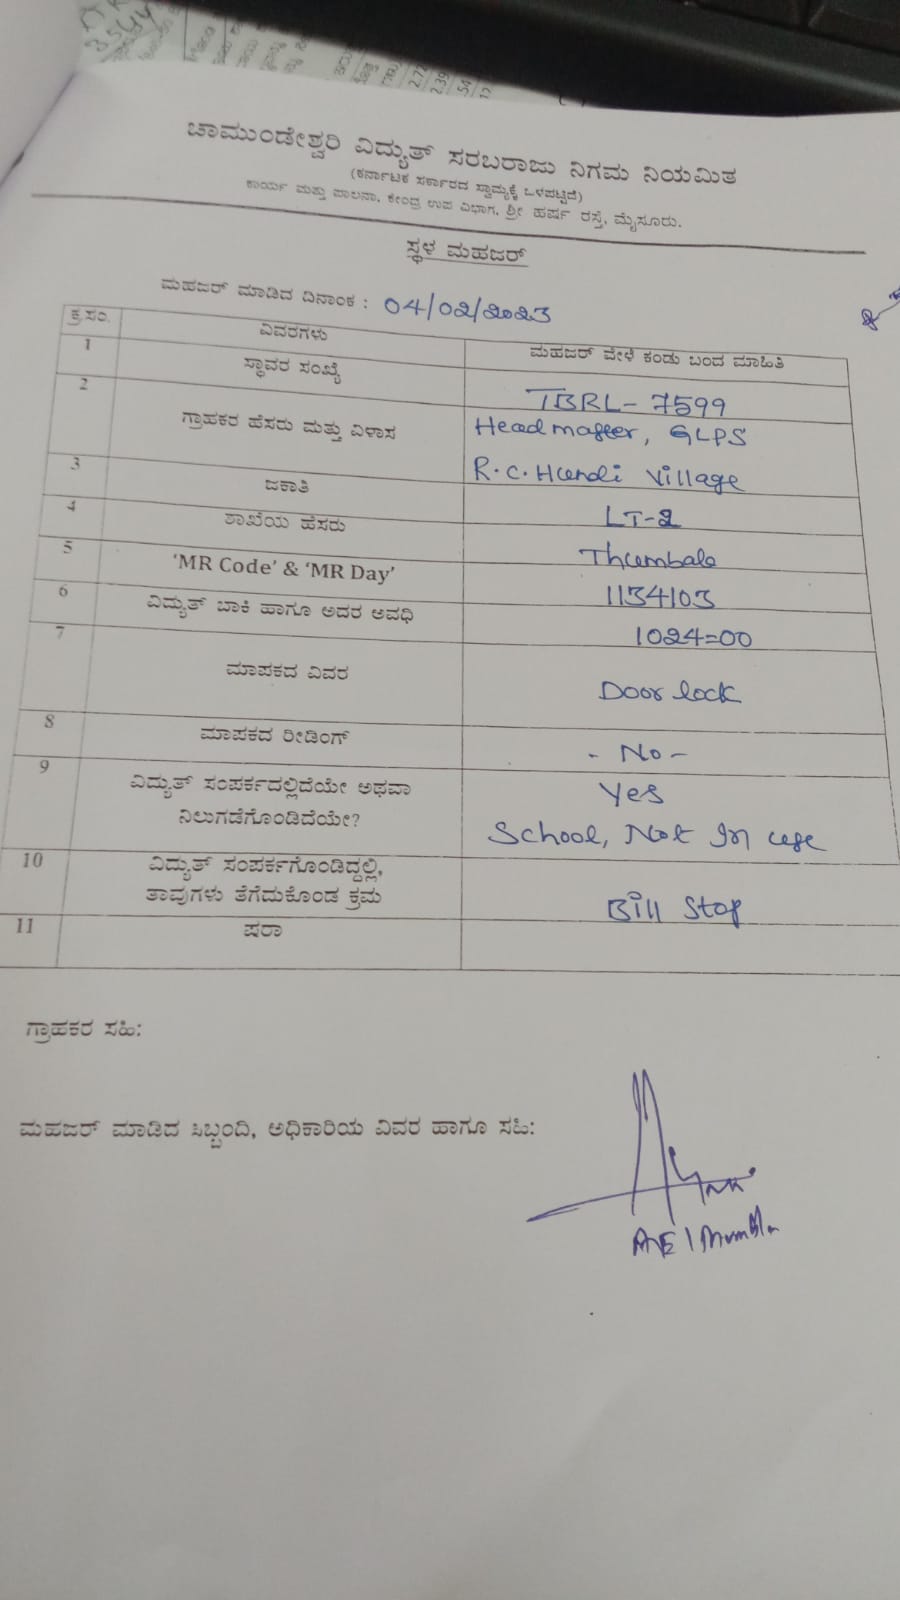 ಚಾಮುಂಡೇಶ್ವರಿ ವಿದ್ಯುತ್ ಸರಬರಾಜು ನಿಗಮ ನಿಯಮಿತ
(ಕರ್ನಾಟಕ ಸರ್ಕಾರದ ಸ್ವಾಮ್ಯಕ್ಕೆ ಒಳಪಟ್ಟಿದೆ)
ಕಾರ್ಯ ಮತ್ತು ಪಾಲನಾ, ಕೇಂದ್ರ ಉಪ ವಿಭಾಗ, ಶ್ರೀ ಹರ್ಷ ರಸ್ತೆ, ಮೈಸೂರು.
ಸ್ಥಳ ಮಹಜರ್
ಮಹಜರ್ ಮಾಡಿದ ದಿನಾಂಕ : 04/02/2023
ಕ್ರ.ಸಂ. ವಿವರಗಳು ಮಹಜರ್ ವೇಳೆ ಕಂಡು ಬಂದ ಮಾಹಿತಿ
1 ಸ್ಥಾವರ ಸಂಖ್ಯೆ TBRL-7599
2 ಗ್ರಾಹಕರ ಹೆಸರು ಮತ್ತು ವಿಳಾಸ Head master, GLPS
R.C. Hundi Village
3 ಜಕಾತಿ LT-2
4 ಶಾಖೆಯ ಹೆಸರು Thumbala
5 'MR Code' & 'MR Day' 1134103
6 ವಿದ್ಯುತ್ ಬಾಕಿ ಹಾಗೂ ಅದರ ಅವಧಿ 1024=00
7 ಮಾಪಕದ ವಿವರ Door lock
8 ಮಾಪಕದ ರೀಡಿಂಗ್ - No -
9 ವಿದ್ಯುತ್ ಸಂಪರ್ಕದಲ್ಲಿದೆಯೇ ಅಥವಾ Yes
ನಿಲುಗಡೆಗೊಂಡಿದೆಯೇ? School, Not In use
10 ವಿದ್ಯುತ್ ಸಂಪರ್ಕಗೊಂಡಿದ್ದಲ್ಲಿ,
ತಾವುಗಳು ತೆಗೆದುಕೊಂಡ ಕ್ರಮ Bill Stop
11 ಷರಾ
ಗ್ರಾಹಕರ ಸಹಿ:
ಮಹಜರ್ ಮಾಡಿದ ಸಿಬ್ಬಂದಿ, ಅಧಿಕಾರಿಯ ವಿವರ ಹಾಗೂ ಸಹಿ: